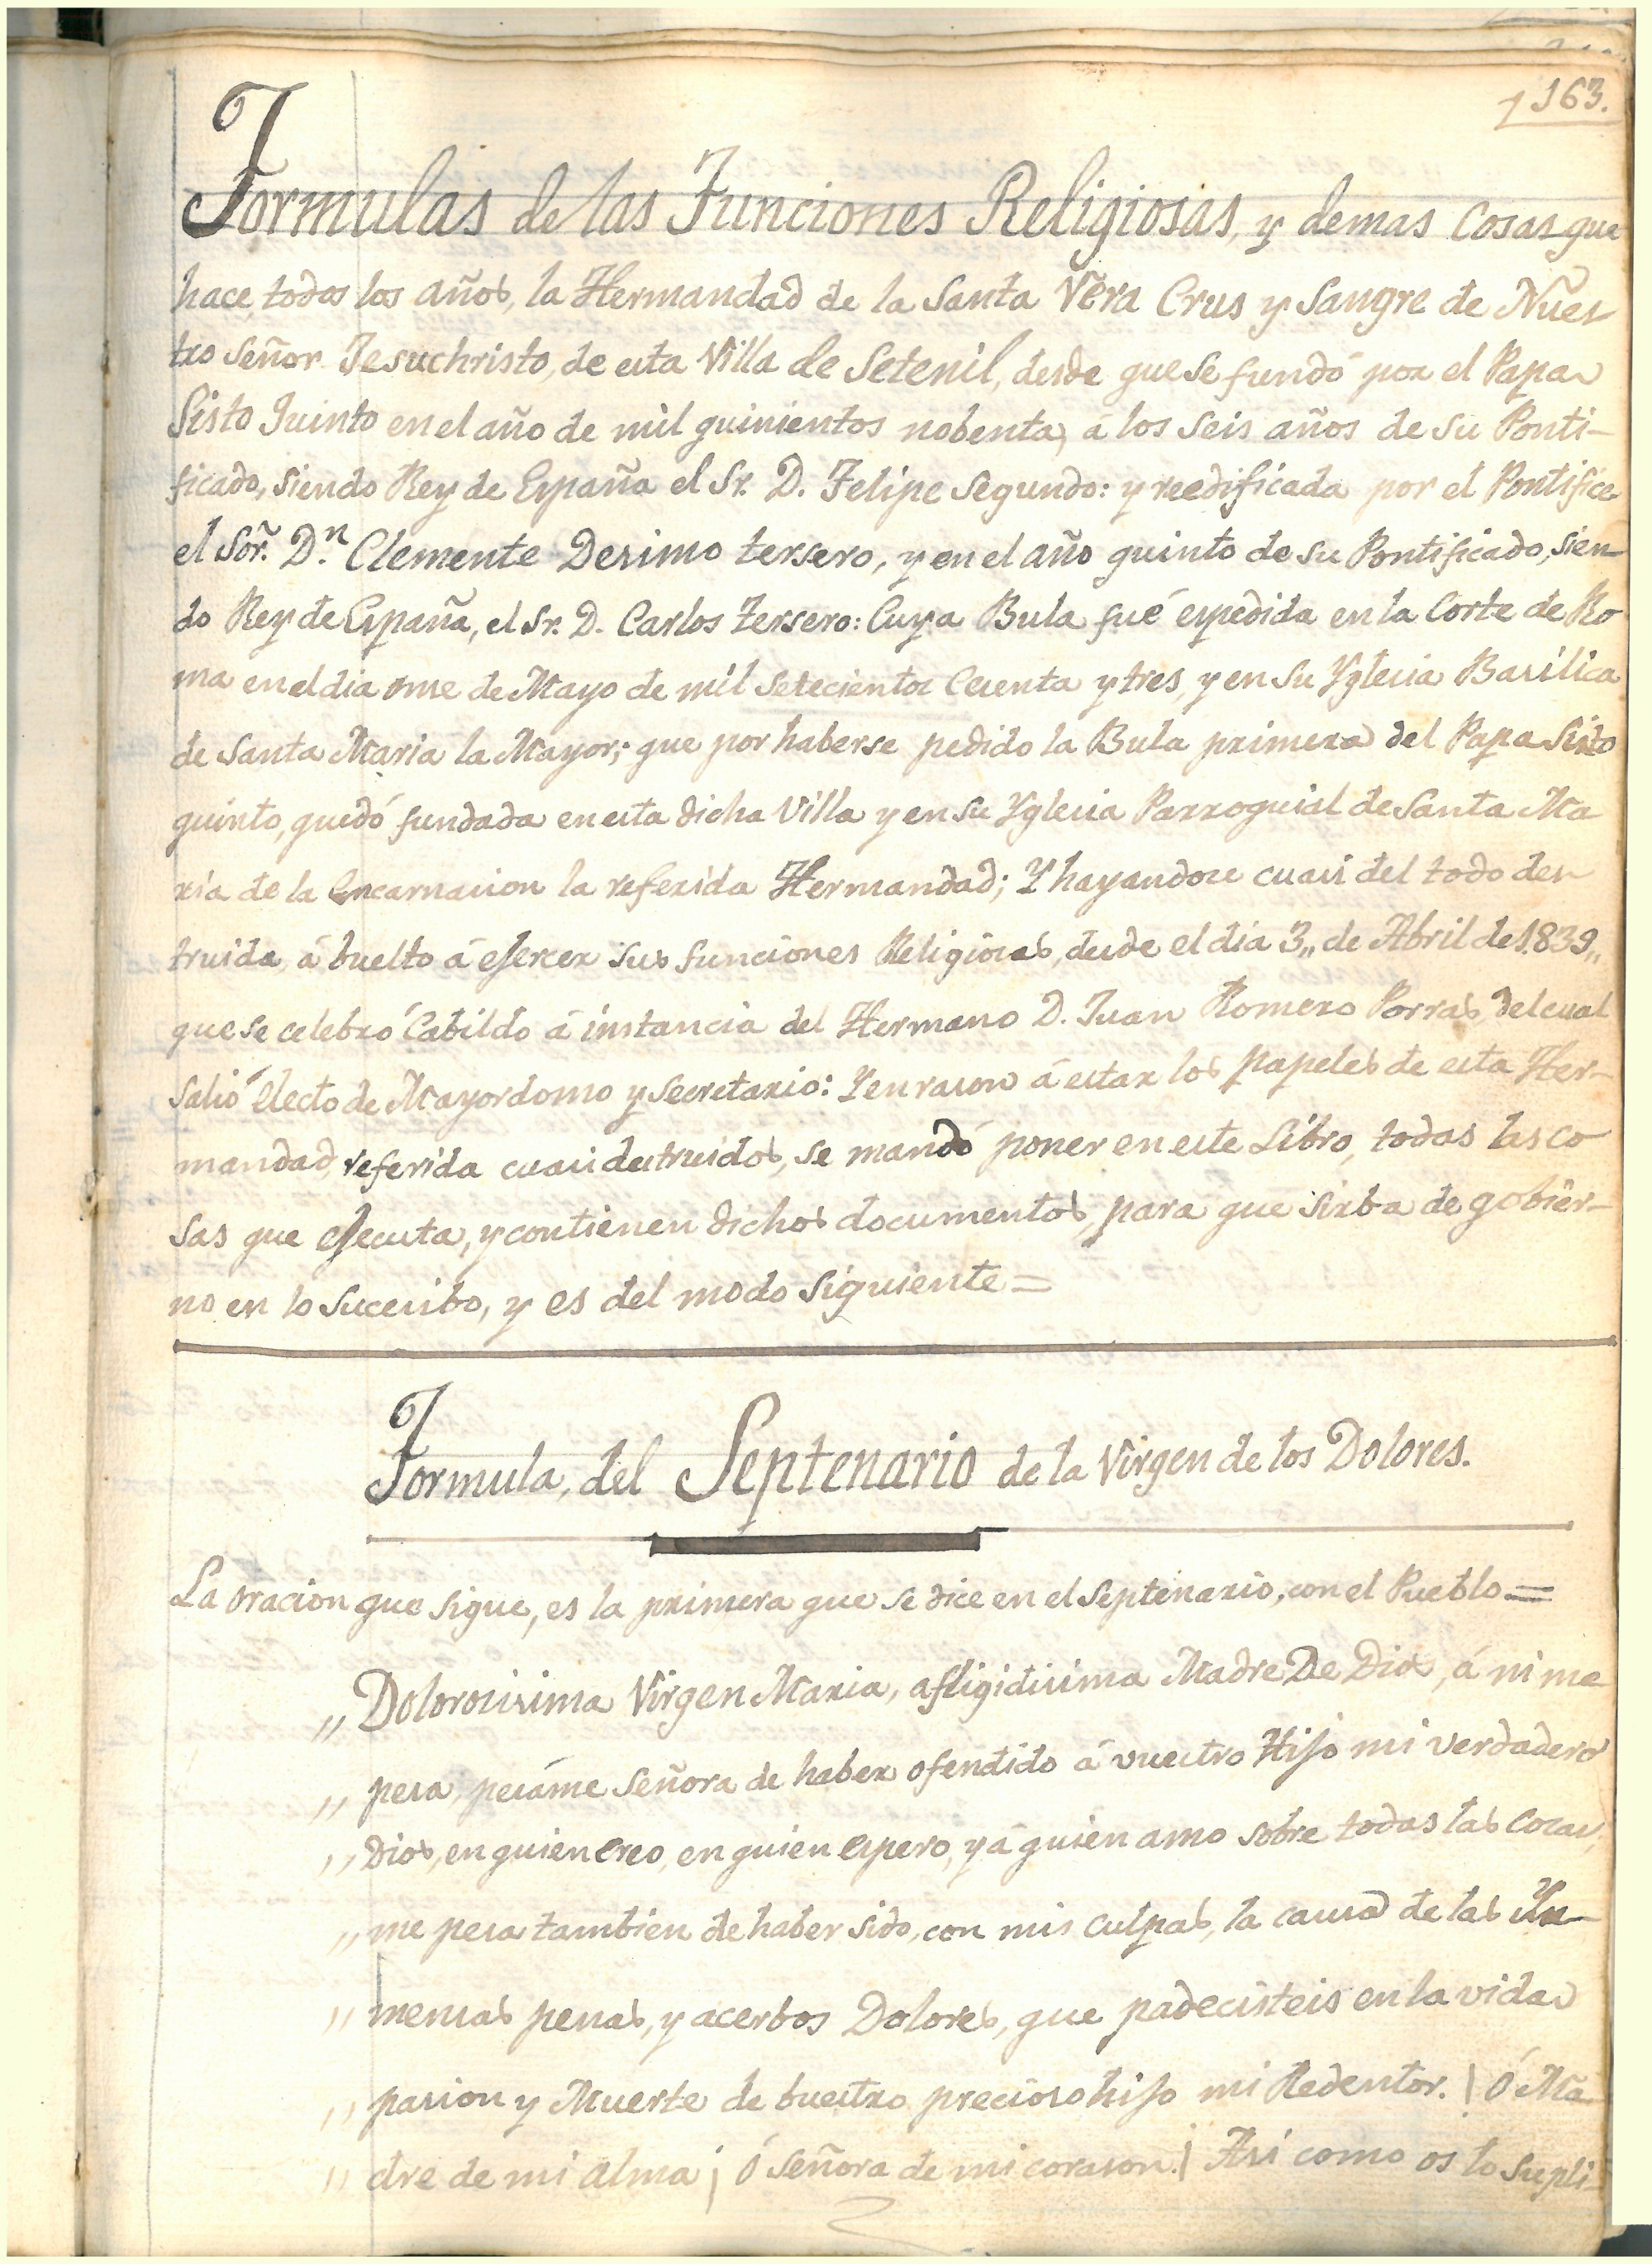 163.
Formulas de las Funciones Religiosas, y demas Cosas que
hace, todos los años, la Hermandad de la Santa Vera Crus y Sangre de Nues
tro Señor Jesuchristo, de esta Villa de Setenil, desde que se fundó por el Papa
Sisto Quinto en el año de mil quinientos nobenta, á los seis años de su Ponti-
ficado, siendo Rey de España el Sr. D. Felipe Segundo: y reedificada por el Pontifice
el Sor. Dn. Clemente Desimo tersero, y en el año quinto de su Pontificado, sien-
do Rey de España, el Sr. D. Carlos Tersero: Cuya Bula fué espedida en la Corte de Ro
ma en el dia onse de Mayo de mil setecientos Cesenta y tres, y en su Yglesia Basilica
de Santa Maria la Mayor; que por haberse pedido la Bula primera del Papa Sisto
quinto, quedó fundada en esta dicha Villa y en su Yglesia Parroquial de Santa Ma
ria de la Encarnasion la referida Hermandad; Y hayandose cuasi del todo des
truida, á buelto á ejercer sus funciones Religiosas, desde el dia 3,, de Abril de 1.839,,
que se celebró Cabildo á instancia del Hermano D. Juan Romero Porras, del cual
salió electo de Mayordomo y Secretario: Y en rason á estar los papeles de esta Her-
mandad, referida cuasi destruidos, se mandó poner en este Libro, todas las co
sas que ejecuta, y contienen dichos documentos, para que sirba de gobier-
no en lo sucesibo, y es del modo siguiente=
Formula, del Septenario de la Virgen de los Dolores.
La oracion que sigue, es la primera que se dice en el Septenario, con el Pueblo=
,, Dolorosisima Virgen Maria, afligidisima Madre De Dios, á mi me
,, pesa, pesáme Señora de haber ofendido á vuestro Hijo mi verdadero
,, Dios, en quien creo, en quien espero, y á quien amo sobre todas las cosas,
,, me pesa tambien de haber sido, con mis culpas, la causa de las Yn-
,, mensas penas, y acerbos Dolores, que padecisteis en la vida
,, pasion y Muerte de buestro precioso hijo mi Redentor. ¡ Ó Ma
,, dre de mi alma ¡ Ó Señora de mi corason.¡ Asi como os lo supli-